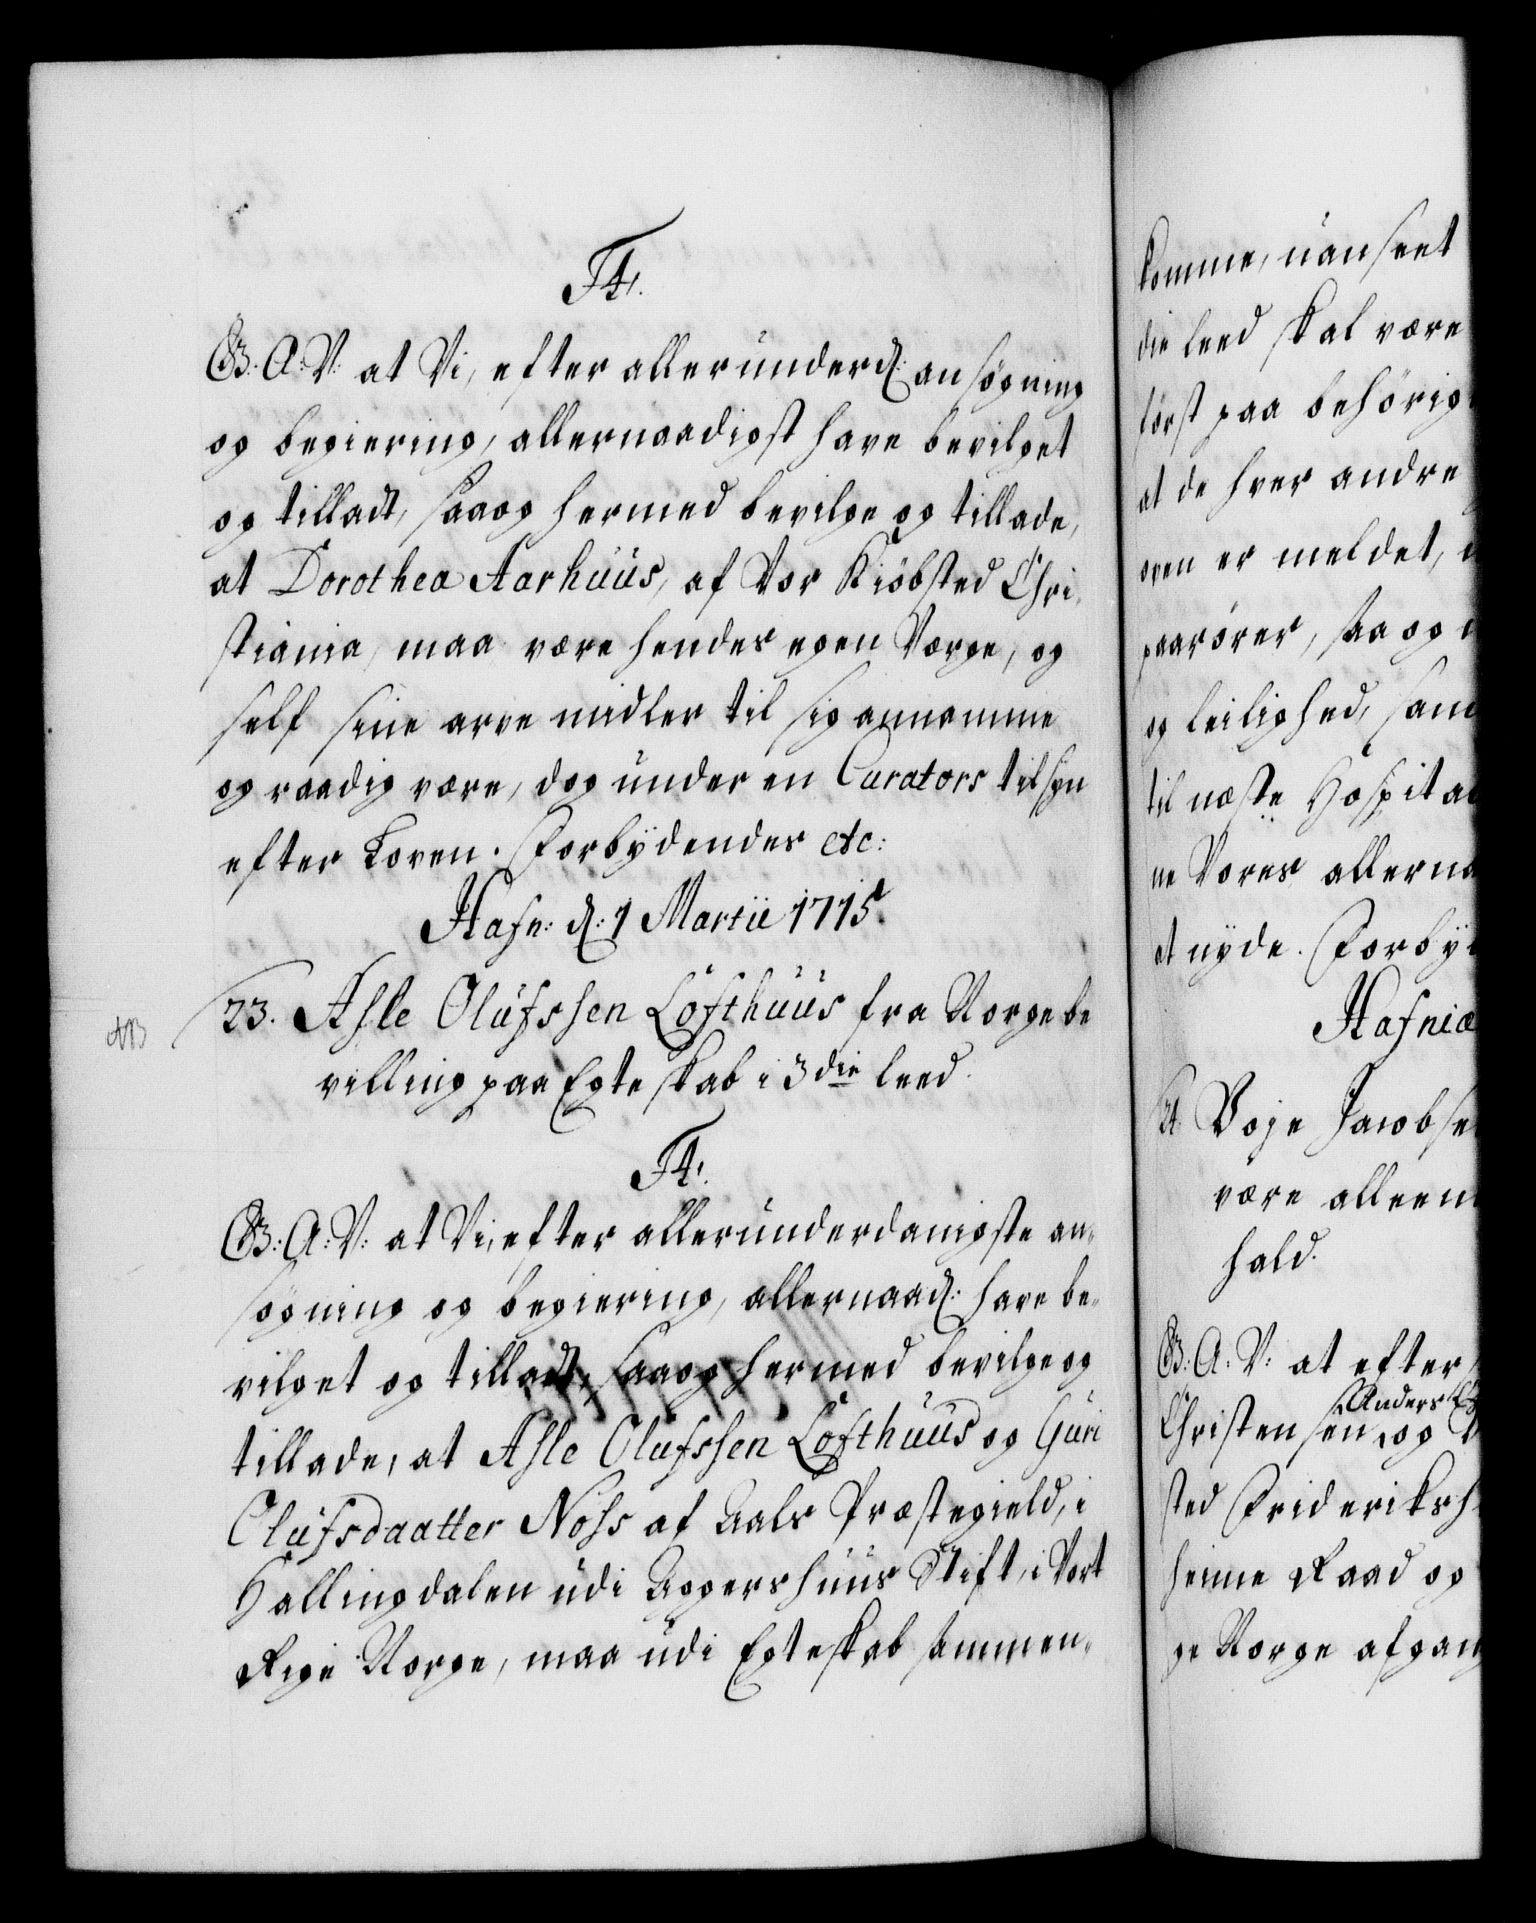 F4.
G. A. V: at Vi, efter allerunderd: ansøgning
og begiering, allernaadigst have bevilget
og tilladt, saa og hermed bevilge og tillade,
at Dorothea Aarhuus, af Vor Kiøbsted Chri-
stiania, maa være hendes egen Værge, og
self sine arve midler til sig annamme
og raadig være, dog under en Curators tilsyn
efter Loven. Forbydendes etc:
Hafn: d: 1 Martii 1715.
23. Asle Olufssen Lofthuus fra Norge be
villing paa Egteskab i 3die leed.
F4.
G: A: V: at Vi, efter allerunderdanigste an-
søgning og begiering, allernaad: have be-
vilget og tilladt, saa og hermed bevilge og
tillade, at Asle Olufssen Lofthuus og Guri
Olufsdaatter Noss af Aals Præstegield, i
Hallingdalen udi Aggershuus Stift, i Vort
Rige Norge, maa udi Egteskab sammen-
komme, uanseet
die leed skal være
først paa behørig
at de hver andre
oven er meldet,
paarører, saa og
og leilighed, sam
til næste Hospita
ne Vores allerna
at nyde. Forby
Hafniæ
24. Boje Jacobse
være alleen
hald.
G: A: V: at efter
Anders
Christensen, og
sted Frideriksh
henne Raad og
ge Norge afgang